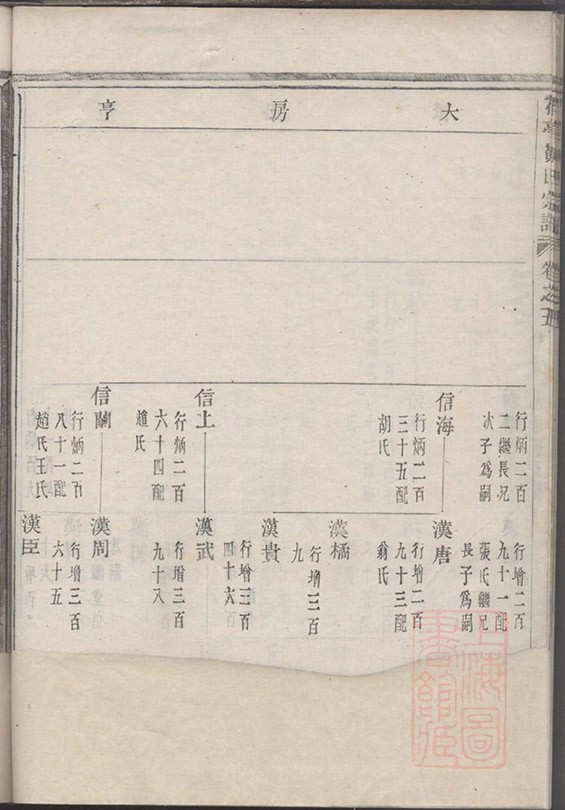 卷之五
大房亨
行炳二百
二繼長兄
次子爲嗣
信海
行炳二百
三十五配
胡氏
信上
行炳二百
六十四配
趙氏
信蘭
行炳二百
八十一配
趙氏王氏
行增二百
九十一配
張氏繼兄
長子爲嗣
漢唐
行增二百
九十三配
翁氏
漢橋
行增三百
九
漢貴
行增三百
四十六
漢武
行增三百
九十八
漢周
行增三百
六十五
漢臣
上海圖書館藏